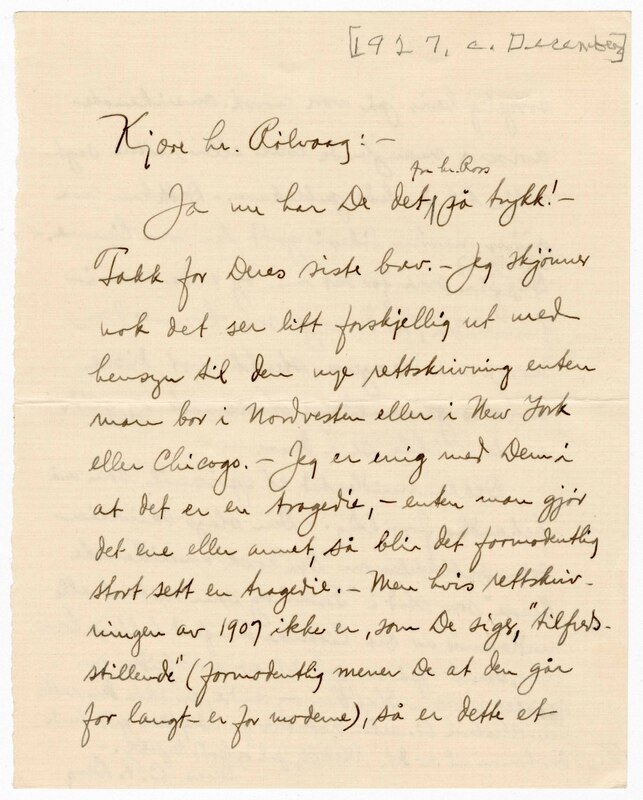 [1927, c. December]
Kjære hr. Rølvaag:-
fra hr. Ross
Ja nu har De det, på trykk!-
Takk for Deres siste brev. - Jeg skjønner
nok det ser litt forskjellig ut med
hensyn til den nye rettskrivning enten
man bor i Nordvesten eller i New York
eller Chicago. - Jeg er enig med Dem i
at det er en tragedie, - enten man gjør
det ene eller annet, så blir det formodentlig
stort sett en tragedie. - Men hvis rettskriv-
ningen av 1907 ikke er, som De siger, "tilfreds-
stillende" (formodentlig mener De at den går
for langt - er for moderne), så er dette et